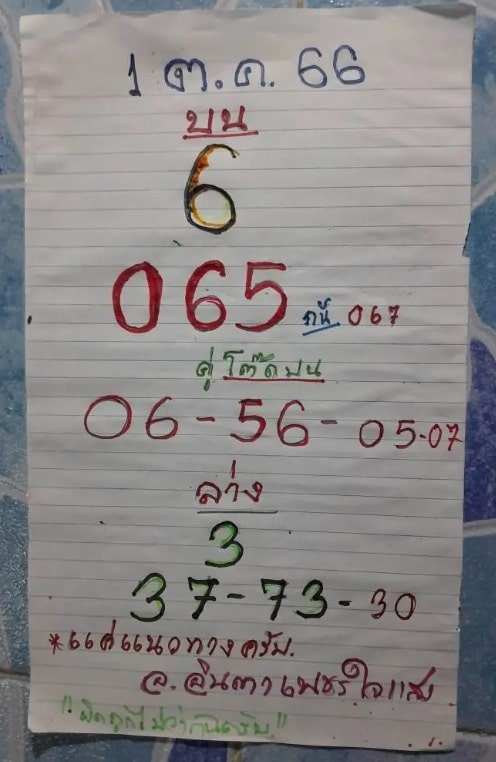 1 ต.ค. 66
บน
6
065 กนี้ 067
คู่โต๊ดบน
06-56-05-07
ล่าง
3
37-73-30
*แค่แนวทางครับ.
อ.อินตาเพชรใจแสง
"ผิดถูกไม่ว่ากันครับ"